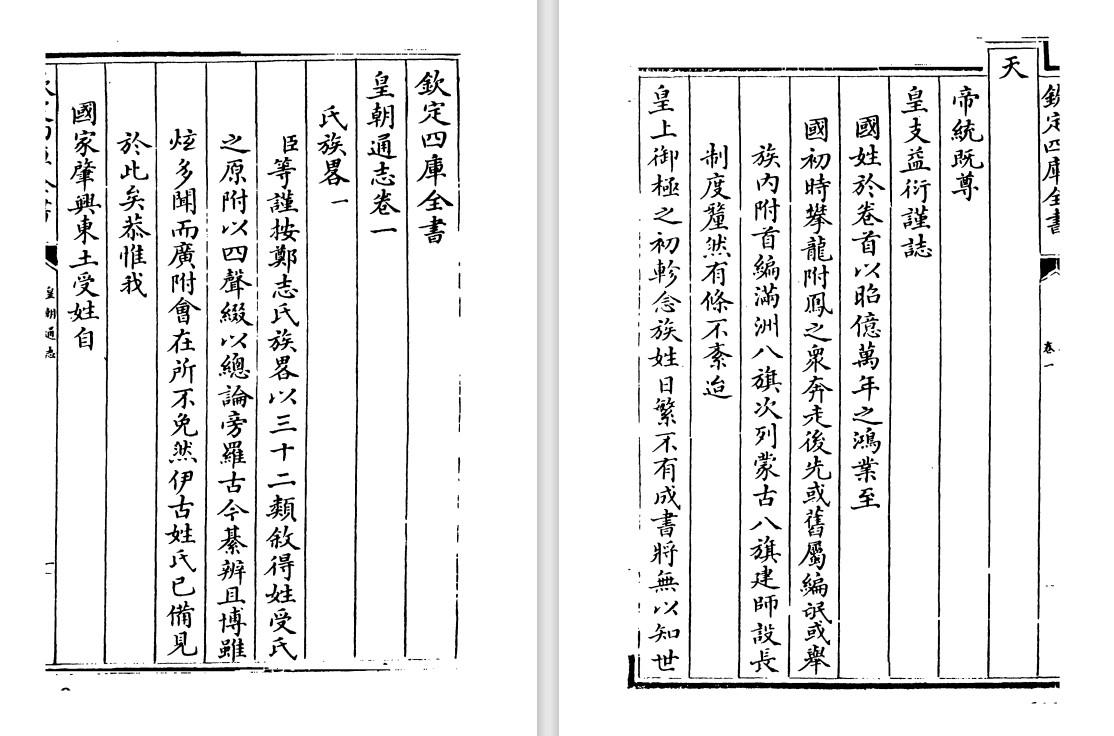 欽定四庫全書
皇朝通志卷一
氏族畧一
臣等謹按鄭志氏族畧以三十二類敘得姓受氏
之原附以四聲綴以總論旁羅古今綦辨且博雖
炫多聞而廣附會在所不免然伊古姓氏已備見
於此矣恭惟我
國家肇興東土受姓自
皇朝通志
欽定四庫全書
卷一
天
帝統既尊
皇支益衍謹誌
國姓於卷首以昭億萬年之鴻業至
國初時攀龍附鳳之衆奔走後先或舊屬編氓或舉
族内附首編滿洲八旗次列蒙古八旗建師設長
制度釐然有條不紊迨
皇上御極之初軫念族姓日繁不有成書將無以知世